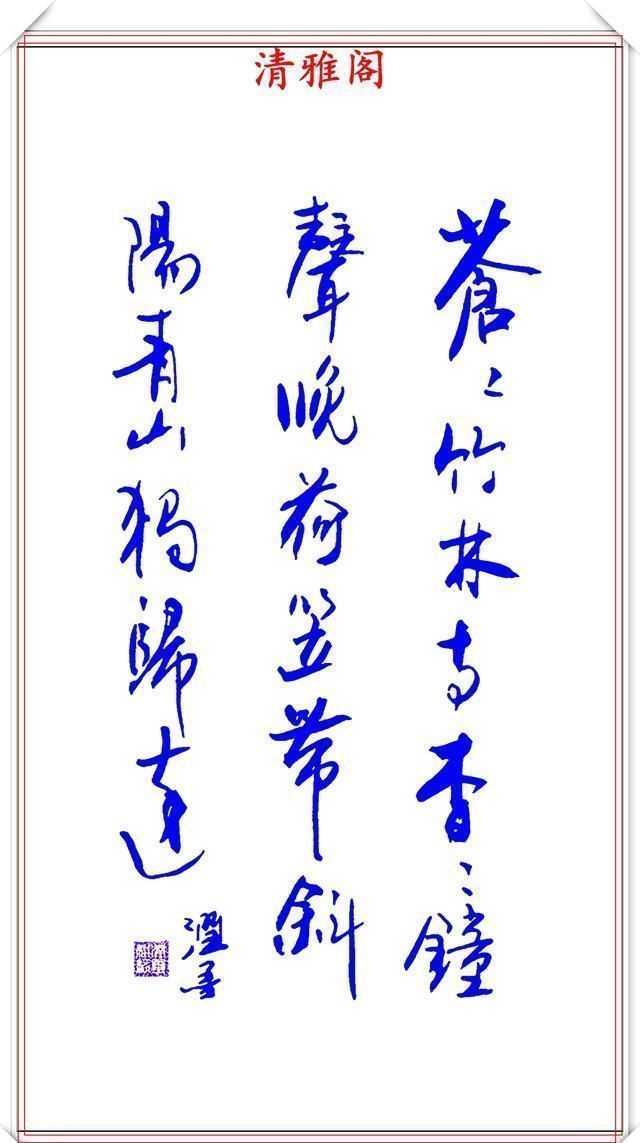 清雅阁
蒼〻竹林寺杳〻鐘
聲晚荷笠帶斜
陽青山獨歸遠